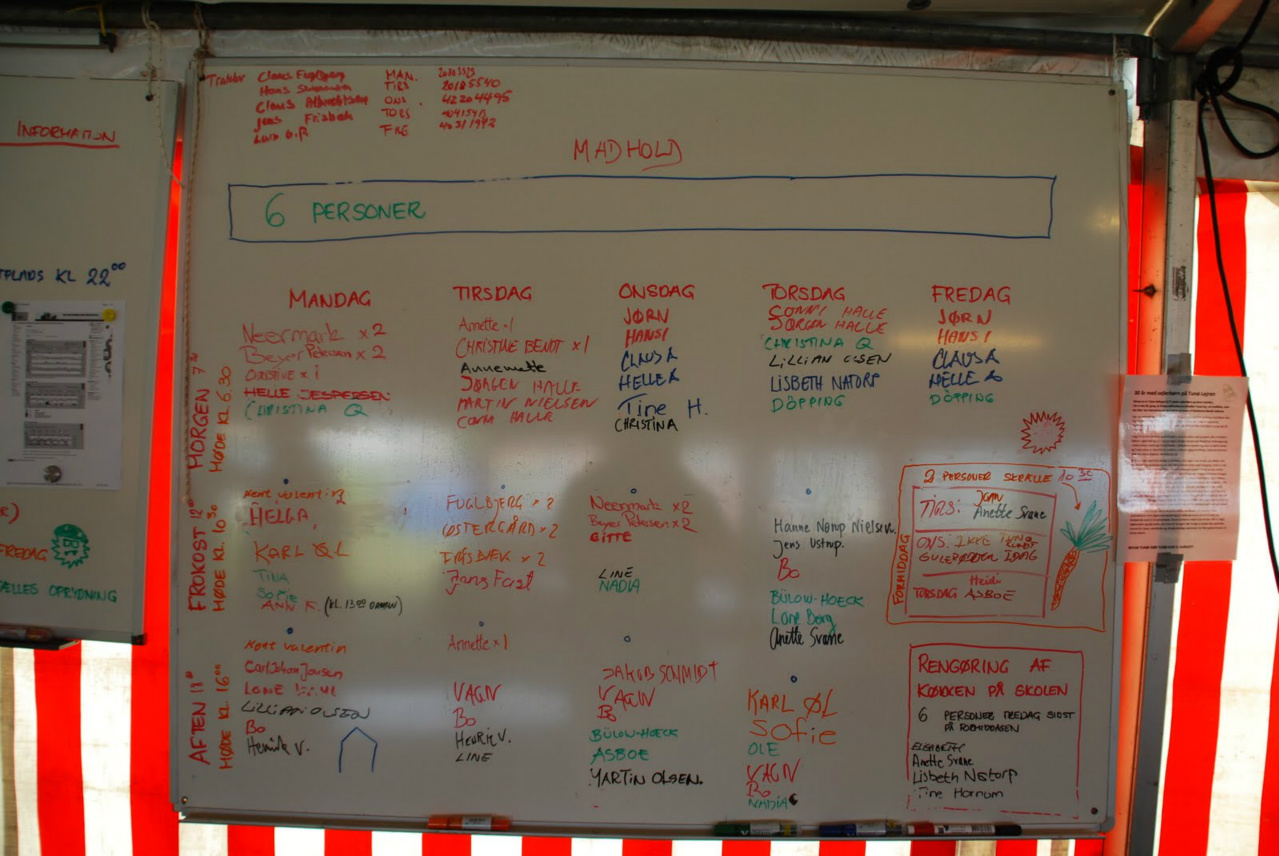 INFORMATION
TPLADS KL 22⁰⁰
FREDAG
ÆLLES OPRYDNING
Claus Fuglbjerg MAN.
Hans TIRS 20185540
Claus Albrechtsen ONS. 42204495
Jens Friisbæk TORS
FRE
MADHOLD
6 PERSONER
MANDAG
TIRSDAG
ONSDAG
TORSDAG
FREDAG
MORGEN 7³⁰
MØDE KL. 6.30
Neermark x 2
Beyer Petersen x 2
CHRISTINE x 1
HELLE JESPERSEN
CHRISTINA Q
Annette x 1
CHRISTINE BENDT x 1
Annemette
JØRGEN HALLE
MARTIN NIELSEN
CONNI HALLE
JØRN
HANSI
CLAUS A
HELLE A
Tine H.
CHRISTINA
SONNI HALLE
JØRGEN HALLE
CHRISTINA Q
LILLIAN OLSEN
LISBETH NATORP
DÖPPING
JØRN
HANSI
CLAUS A
HELLE A
DÖPPING
FROKOST 12⁰⁰
MØDE KL. 10³⁰
Kent Valentin 2
HELGA
KARL ØL
TINA
SOFIE
ANN K. (KL. 13⁰⁰
FUGLBJERG x 2
ØSTERGÅRD x 2
FRIISBÆK x 2
Jans Fast
Neermark x 2
Beyer Petersen x 2
GITTE
LINE
NADIA
Hanne Nørup Nielsen.
Jens Ustrup.
Bo
BÜLOW-HOECK
Lone Berg
Anette Svane
FORMIDDAG
2 PERSONER SKRÆLLE 10³⁰
TIRS: Jørn
Anette Svane
ONS: IKKE
GULERØDDER IDAG
Heidi
TORSDAG ASBOE
AFTEN 18⁰⁰
MØDE KL. 16⁰⁰
Kent Valentin
Carl Johan Jensen
LONE
LILLIAN OLSEN
Bo
Henrik V.
Annette x 1
VAGN
Bo
HENRIK V.
LINE
JAKOB SCHMIDT
VAGN
Bo
BÜLOW-HOECK
ASBOE
MARTIN OLSEN.
KARL ØL
Sofie
OLE
VAGN
Bo
NADIA
RENGØRING AF
KØKKEN PÅ SKOLEN
6 PERSONER FREDAG SIDST
PÅ FORMIDDAGEN
ELSEBETH
Anette Svane
Lisbeth Natorp
Tine Hornum